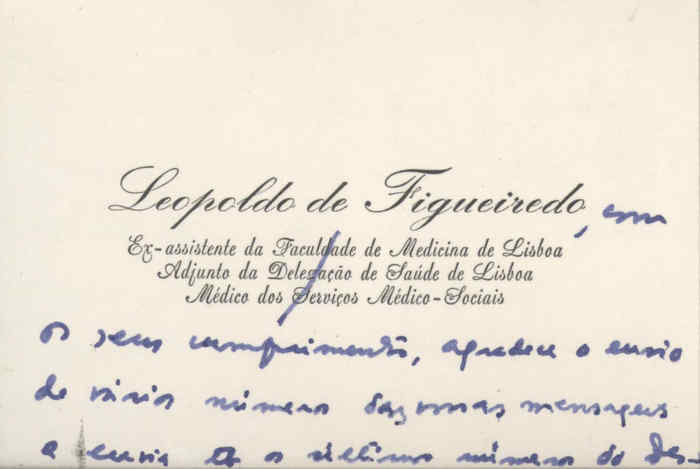 Leopoldo de Figueiredo, com
Ex-assistente da Faculdade de Medicina de Lisboa
Adjunto da Delegação de Saúde de Lisboa
Médico dos Serviços Médico-Sociais
os seus cumprimentos, agradece o envio
de vários números das mensagens
e envia os últimos números do Des-